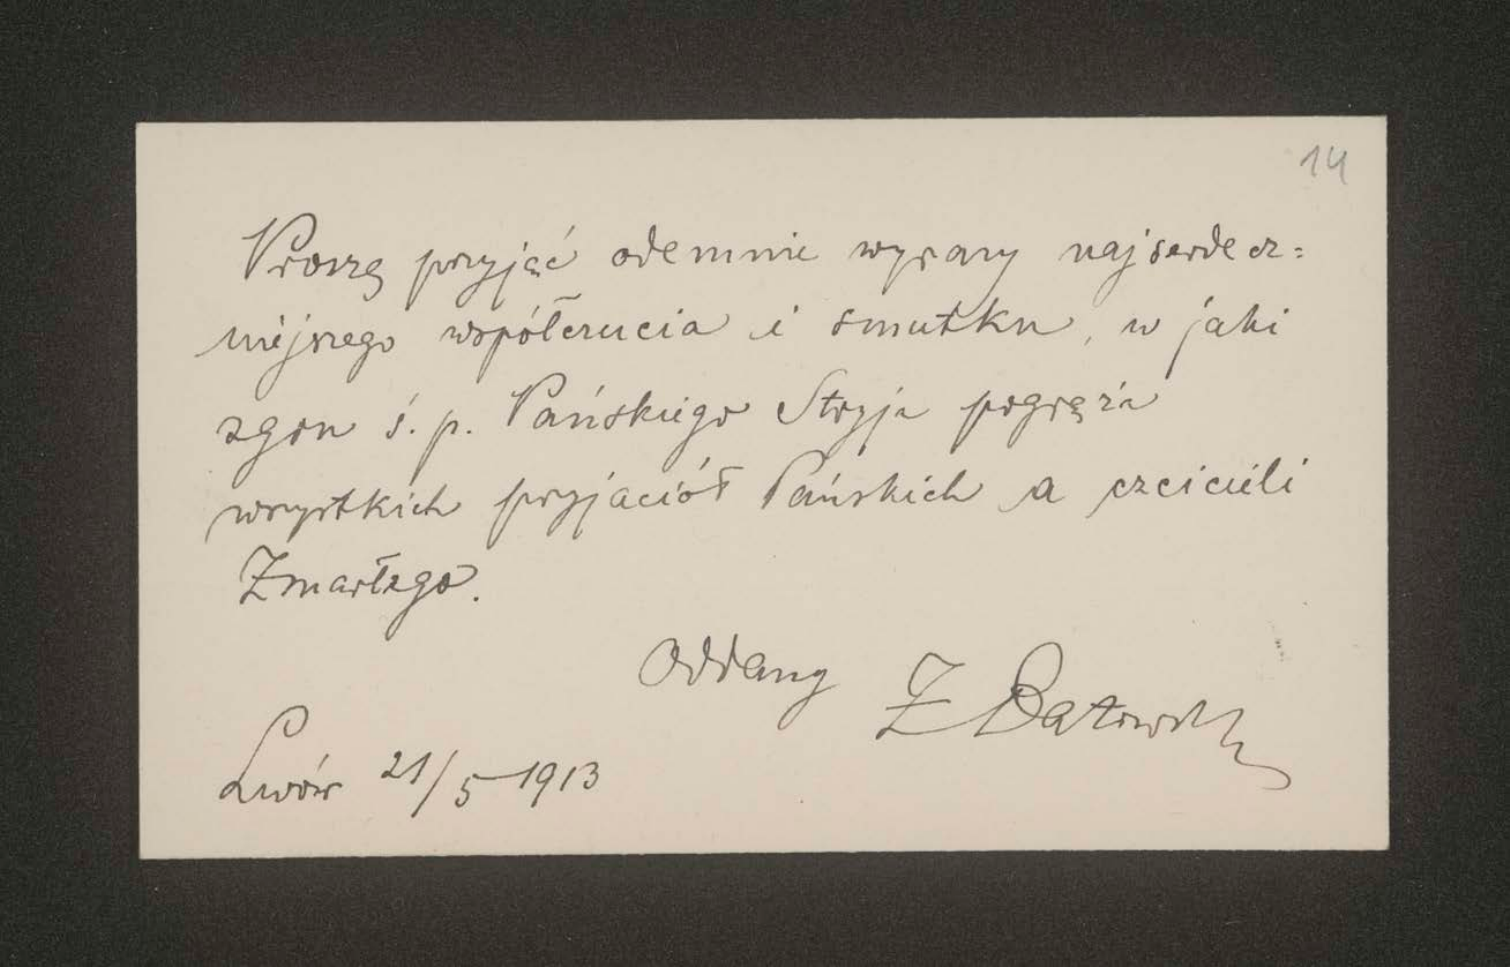 14
Proszę przyjąć odemnie wyrazy najserdecz=
niejszego współczucia i smutku, w jaki
zgon ś. p. Pańskiego Stryja pogrąża
wszystkich przyjaciół Pańskich a czcicieli
Zmarłego.
Oddany Z Batowski
Lwów 21/5 1913